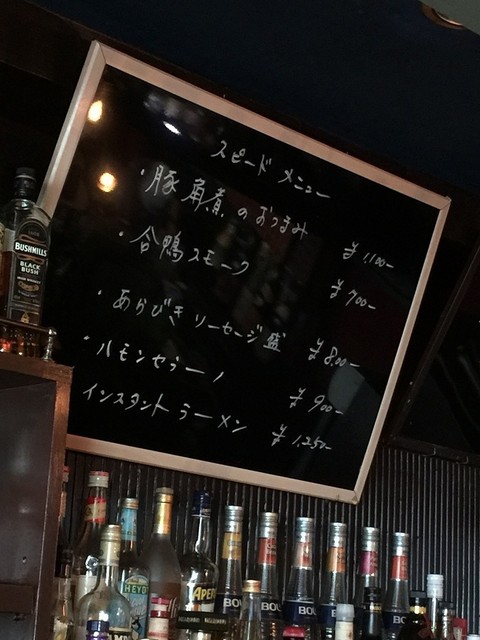 スピード メニュー
・豚角煮のおつまみ ¥1,100-
・合鴨スモーク ¥700-
・あらびきソーセージ盛 ¥800-
・ハモンセラーノ ¥900-
・インスタントラーメン ¥1,250-
BUSHMILLS
BLACK BUSH
HEYDT
APEROL
BOLS